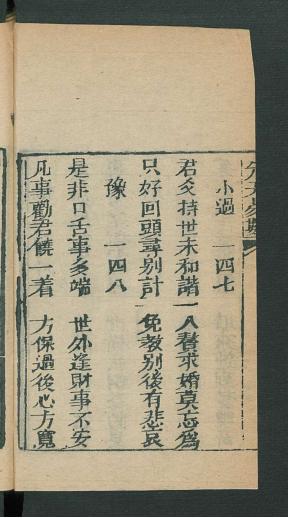 小過 一四七
君爻持世未和諧 一人砮求婚莫忘為
只好回頭尋別計 免教别後有悲哀
豫 一四八
是非口舌事多端 世外逢財事不安
凡事勸君饒一着 方保過後心方寬